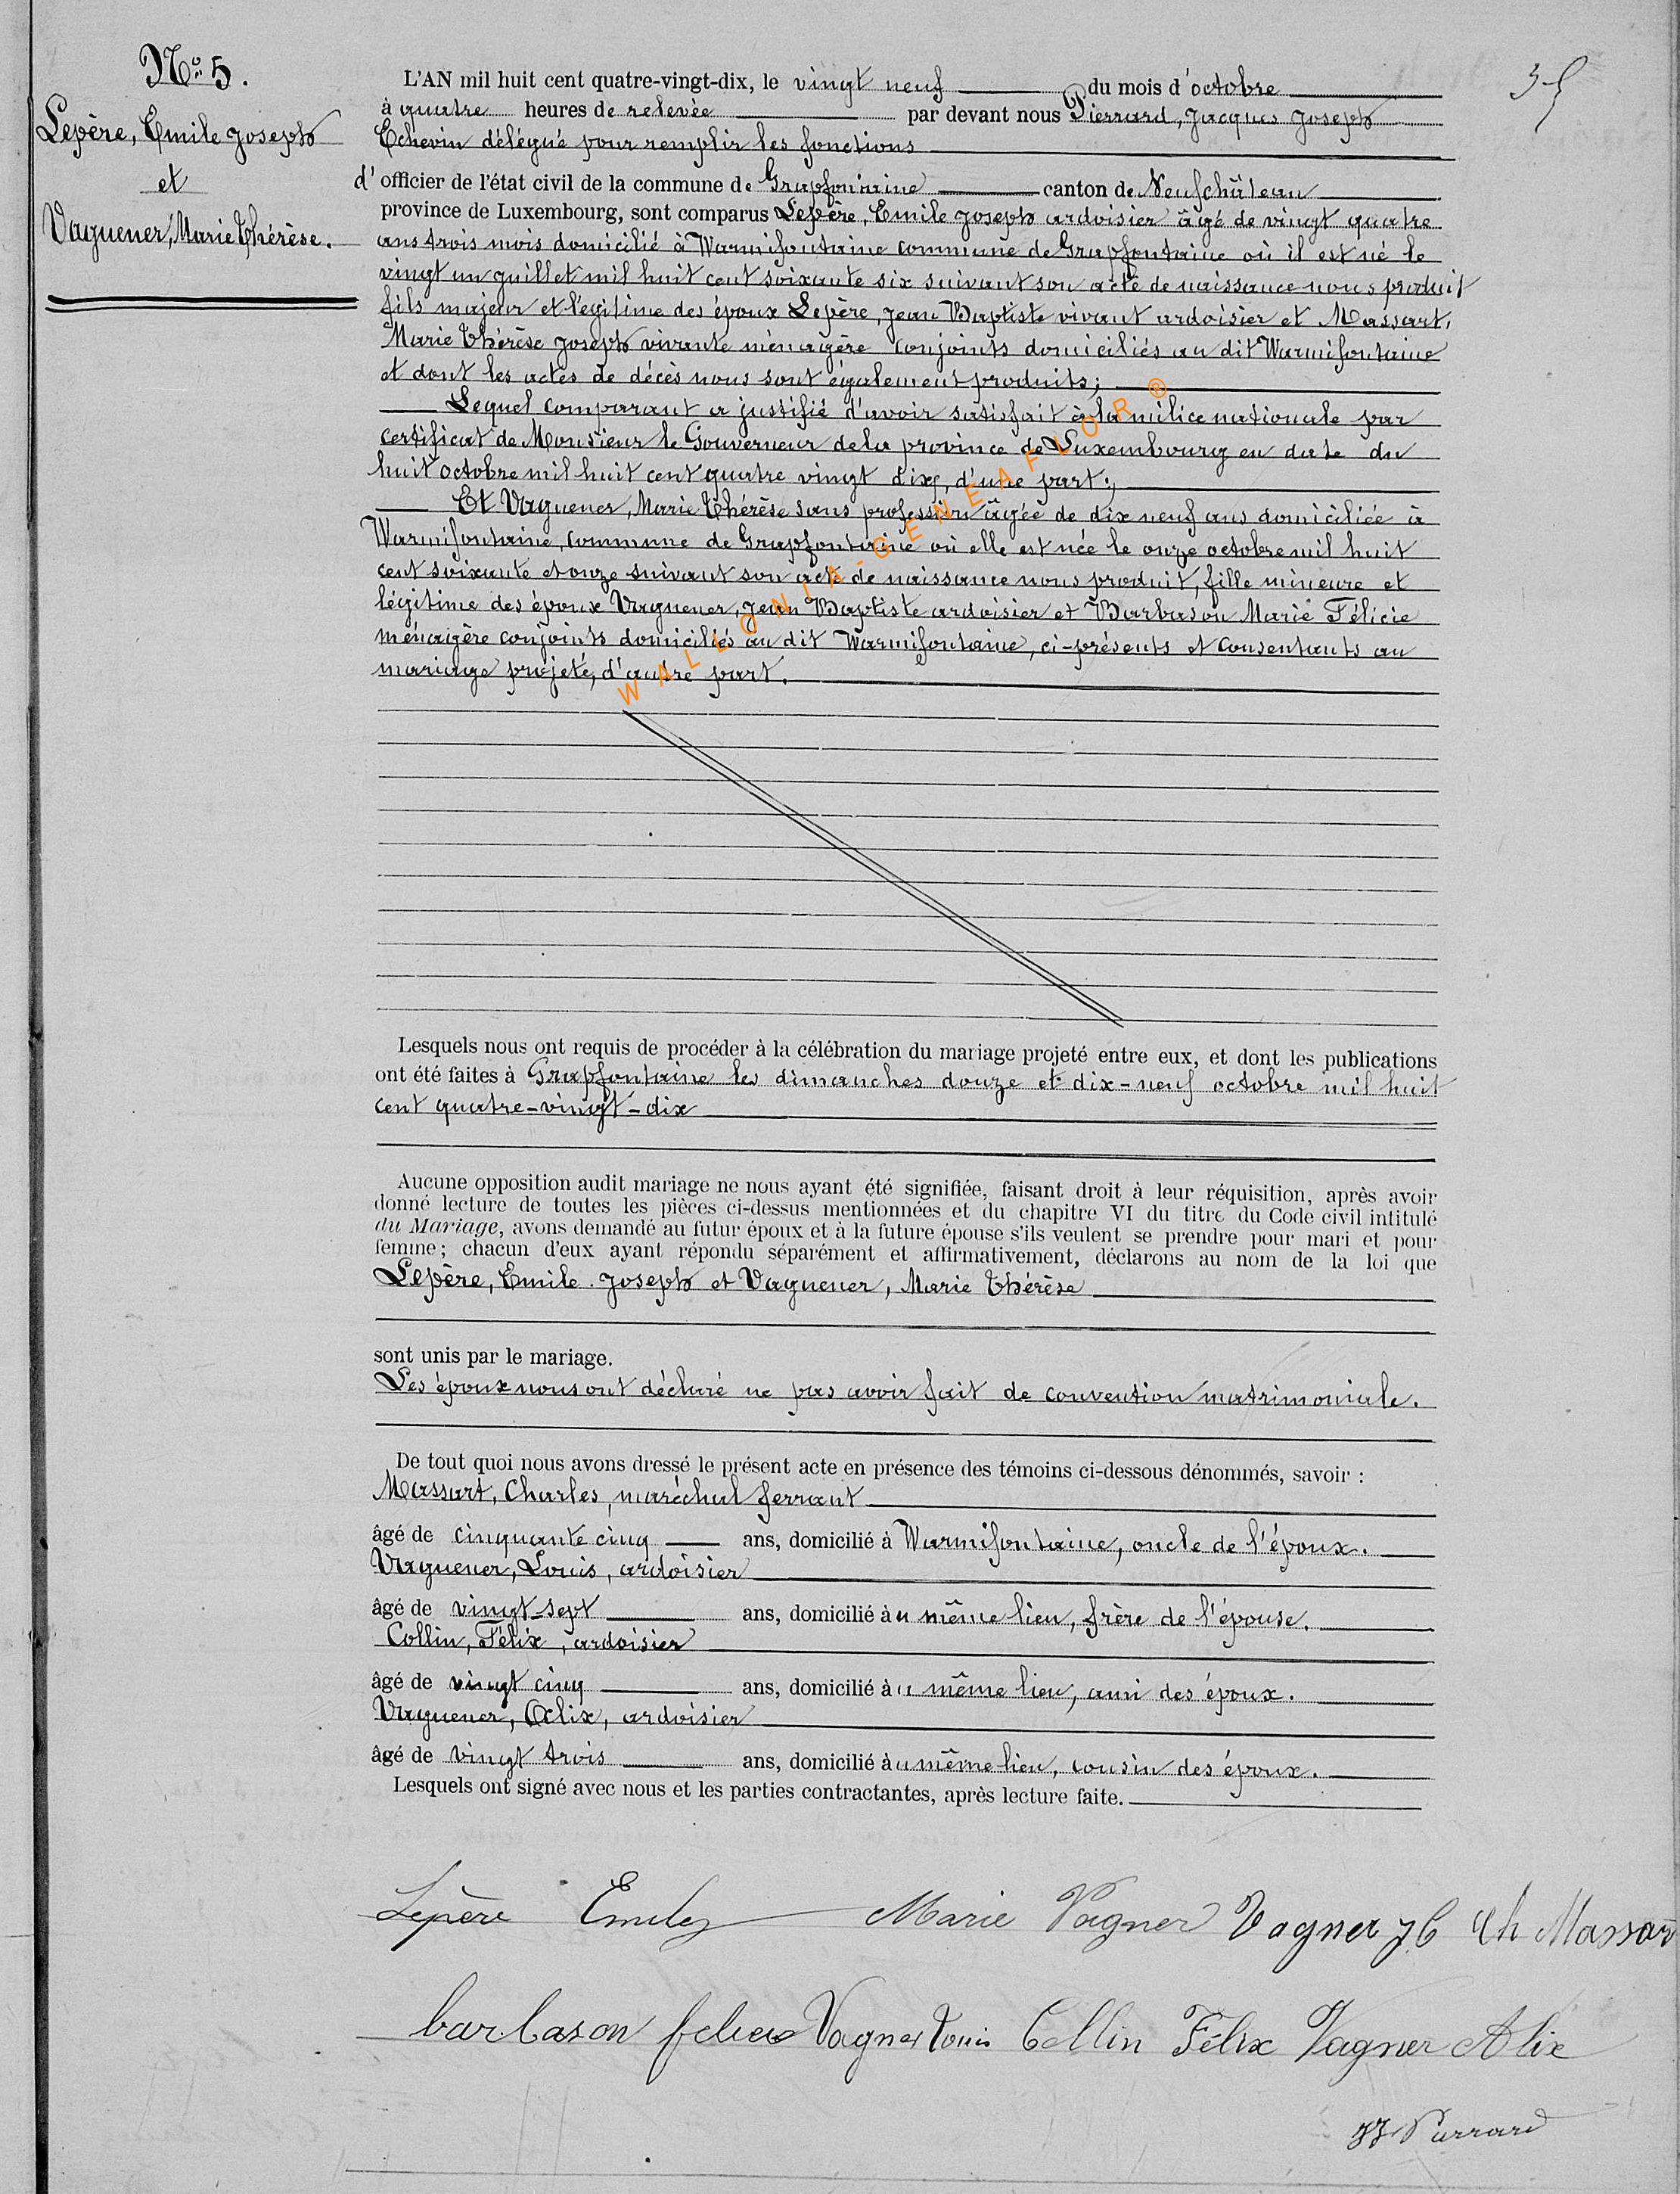 Nº 5.
Lepère, Emile Joseph
et
Vaguener, Marie Thérèse.
35
L'AN mil huit cent quatre-vingt-dix, le vingt neuf du mois d'octobre
à quatre heures de relevée par devant nous Pierrard, Jacques Joseph
Echevin délégué pour remplir les fonctions
d'officier de l'état civil de la commune de Grapfontaine canton de Neufchâteau
province de Luxembourg, sont comparus Lepère, Emile Joseph ardoisier âgé de vingt quatre
ans trois mois domicilié à Warmifontaine commune de Grapfontaine où il est né le
vingt un juillet mil huit cent soixante six suivant son acte de naissance nous produit
fils majeur et légitime des époux Lepère, Jean Baptiste vivant ardoisier et Massart,
Marie Thérèse Joseph vivante ménagère conjoints domiciliés au dit Warmifontaine
et dont les actes de décès nous sont également produits;
Lequel comparant a justifié d'avoir satisfait à la milice nationale par
certificat de Monsieur le Gouverneur de la province de Luxembourg en date du
huit octobre mil huit cent quatre vingt dix, d'une part;
Et Vaguener, Marie Thérèse sans profession âgée de dix neuf ans domiciliée à
Warmifontaine, commune de Grapfontaine où elle est née le onze octobre mil huit
cent soixante et onze suivant son acte de naissance nous produit, fille mineure et
légitime des époux Vaguener, Jean Baptiste ardoisier et Barbason Marie Félicie
ménagère conjoints domiciliés au dit Warmifontaine, ci-présents et consentants au
mariage projeté, d'autre part.
WALLONIA-GENEAFLOR®
Lesquels nous ont requis de procéder à la célébration du mariage projeté entre eux, et dont les publications
ont été faites à Grapfontaine les dimanches douze et dix-neuf octobre mil huit
cent quatre-vingt-dix
Aucune opposition audit mariage ne nous ayant été signifiée, faisant droit à leur réquisition, après avoir
donné lecture de toutes les pièces ci-dessus mentionnées et du chapitre VI du titre du Code civil intitulé
du Mariage, avons demandé au futur époux et à la future épouse s'ils veulent se prendre pour mari et pour
femme; chacun d'eux ayant répondu séparément et affirmativement, déclarons au nom de la loi que
Lepère, Emile Joseph et Vaguener, Marie Thérèse
sont unis par le mariage.
Les époux nous ont déclaré ne pas avoir fait de convention matrimoniale.
De tout quoi nous avons dressé le présent acte en présence des témoins ci-dessous dénommés, savoir :
Massart, Charles, maréchal ferrant
âgé de cinquante cinq ans, domicilié à Warmifontaine, oncle de l'époux.
Vaguener, Louis, ardoisier
âgé de vingt-sept ans, domicilié au même lieu, frère de l'épouse.
Collin, Félix, ardoisier
âgé de vingt cinq ans, domicilié au même lieu, ami des époux.
Vaguener, Alix, ardoisier
âgé de vingt trois ans, domicilié au même lieu, cousin des époux.
Lesquels ont signé avec nous et les parties contractantes, après lecture faite.
Lepère Emile Marie Vagner Vagner JB Ch Massar
barbason felicie Vagner Louis Collin Félix Vagner Alix
JJ Pierrard